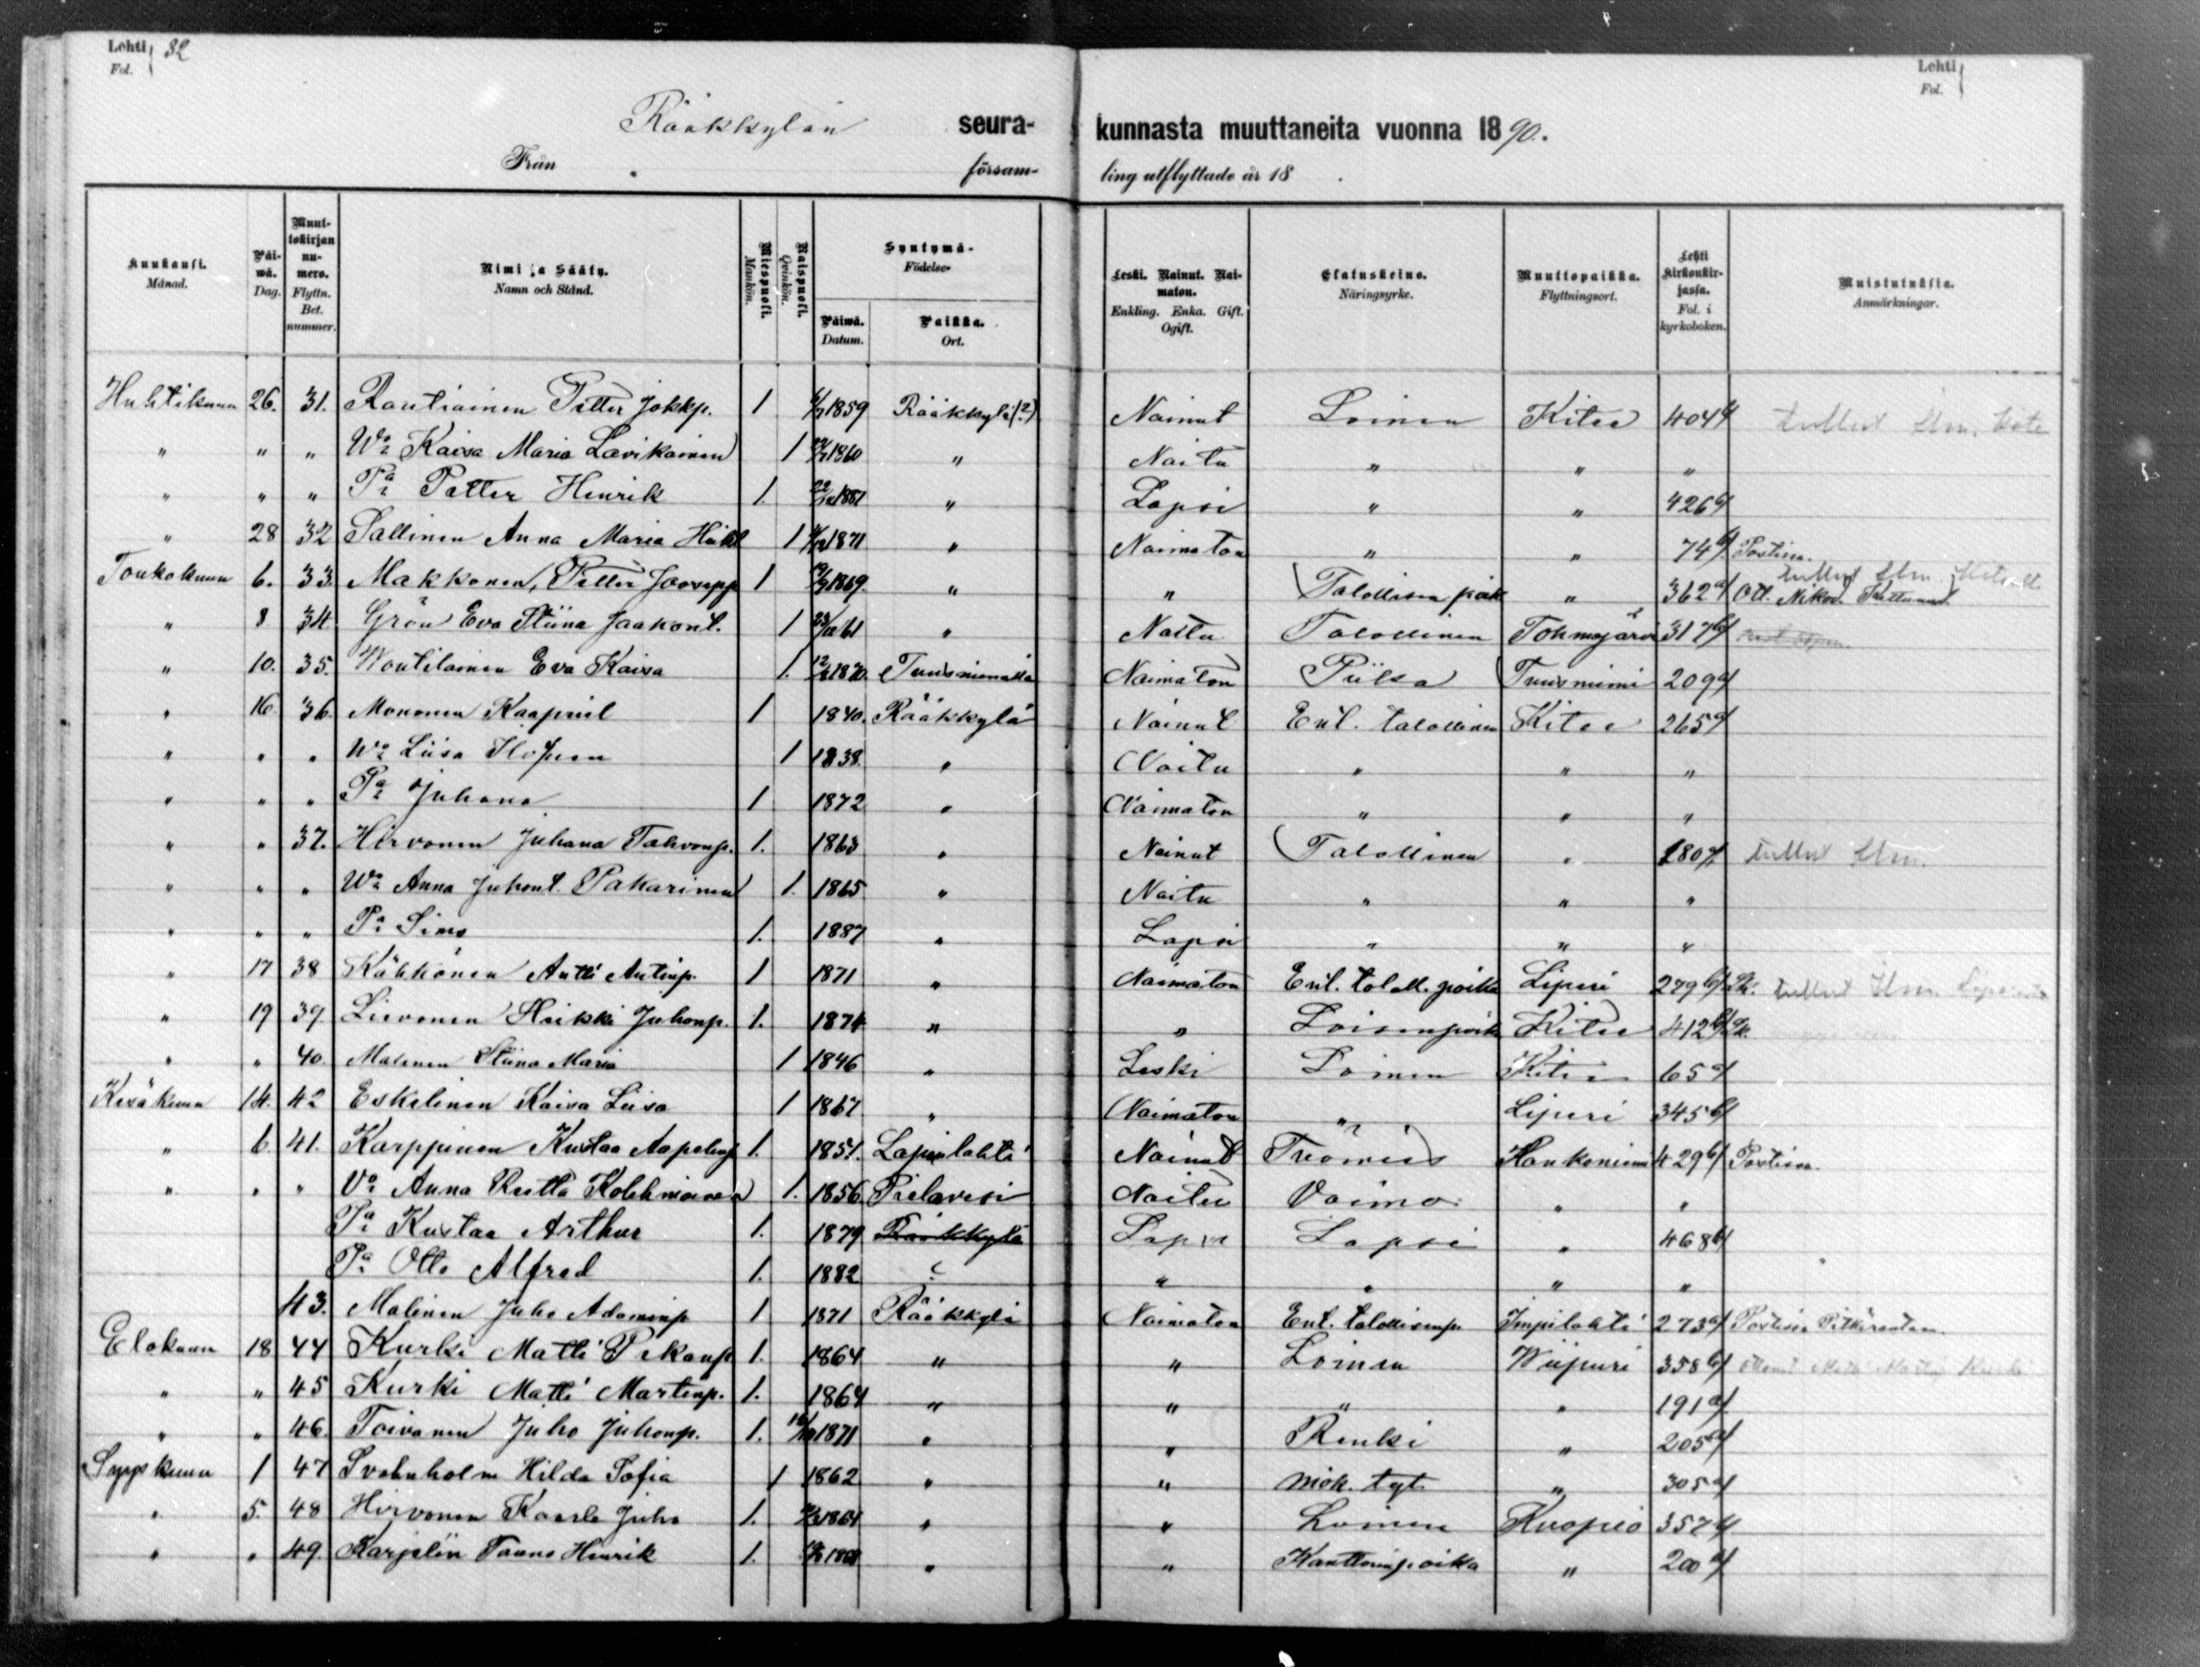 Lehti Fol. 32
Lehti Fol.
Rääkkylän seura- kunnasta muuttaneita vuonna 1890.
Från försam- ling utflyttade år 18
Kuukausi. Månad. Päiwä. Dag. Muuttokirjan numero. Flyttn. Bet. nummer. Nimi ja Sääty. Namn och Stånd. Miespuoli. Mankön. Naispuoli. Qvinkön. Syntymä- Födelse- Päiwä. Datum. Paikka. Ort. Leski. Nainut. Naimaton. Enkling. Enka. Gift. Ogift. Elatuskeino. Näringsyrke. Muuttopaikka. Flyttningsort. Lehti kirkonkirjassa. Fol. i kyrkoboken. Muistutuksia. Anmärkningar.
Huhtikuun 26. 31. Rautiainen Petter Jokkp. 1 1859 Rääkkylä (2) Nainut Loinen Kitee 404 tullut Ilm.
" " " Wo Kaisa Maria Lavikainen 1 1860 " Naitu " " "
" " " Pa Petter Henrik 1. 1881 " Lapsi " " 426
" 28 32 Sallinen Anna Maria 1 1871 " Naimaton " " 74 Postissa.
Toukokuun 6. 33. Makkonen, Petter Joosepp 1 1869. " " Talollisen poik " 362 Ott. Nikod. tullut Ilm.
" 8 34. Grön Eva Stiina Jaakont. 1 61 " Naitu Talollinen Tohmajärvi 317
" 10. 35. Woutilainen Eva Kaisa 1. 1870. Tuusniemellä Naimaton Piika Tuusniemi 209
" 16 36. Mononen Kaapriel 1 1840. Rääkkylä Nainut Ent. talollinen Kitee 265
" " " Wo Liisa 1 1838. " Naitu " " "
" " " Pa Juhana 1 1872 " Naimaton " " "
" " 37. Hirvonen Juhana Tahvonp. 1. 1863 " Nainut Talollinen " 180 tullut Ilm.
" " " Wo Anna Juhont. Pakarinen 1. 1865 " Naitu " " "
" " " Pa Simo 1. 1887 " Lapsi " " "
" 17 38 Kähkönen Antti Antinp. 1 1871 " Naimaton Ent. taloll. poika Liperi 279 tullut Ilm.
" 19 39. Lievonen Heikki Juhonp. 1. 1874 " " Loisenpoik Kitee 412
" " 40. Malinen Stiina Maria 1 1846 " Leski Loinen Kitee 65
Kesäkuun 14. 42 Eskelinen Kaisa Liisa 1 1867 " Naimaton " Liperi 345
" 6. 41. Karppinen Kustaa Aapelinp 1. 1851. Lapinlahti Nainut Hankoniemi 429 Postissa.
" " " Vo Anna Reetta Kolehmainen 1. 1856. Pielavesi Naitu Vaimo " "
Pa Kustaa Arthur 1. 1879 Rääkkylä Lapsi Lapsi " 468
Pa Otto Alfred 1. 1882 " " " "
43. Malinen Juho Adaminp 1 1871 Rääkkylä Naimaton Ent. talollisenp. Impilahti 273 Postissa Pitkärantaan.
Elokuun 18 44 Kurki Matti Pekanp 1. 1864 " " Loinen Wiipuri 358
" " 45 Kurki Matti Martinp. 1. 1864 " " " " 191
" " 46. Toivanen Juho Juhonp. 1. 1871 " " Renki " 205
Syyskuun 1 47 Svahnholm Hilda Sofia 1 1862 " " mök. tyt. " 305
" 5. 48 Hirvonen Kaarle Juho 1. 1864 " " Loinen Kuopio 357
" " 49. Karjalin Tauno Henrik 1. " " Kanttorinpoika " 200